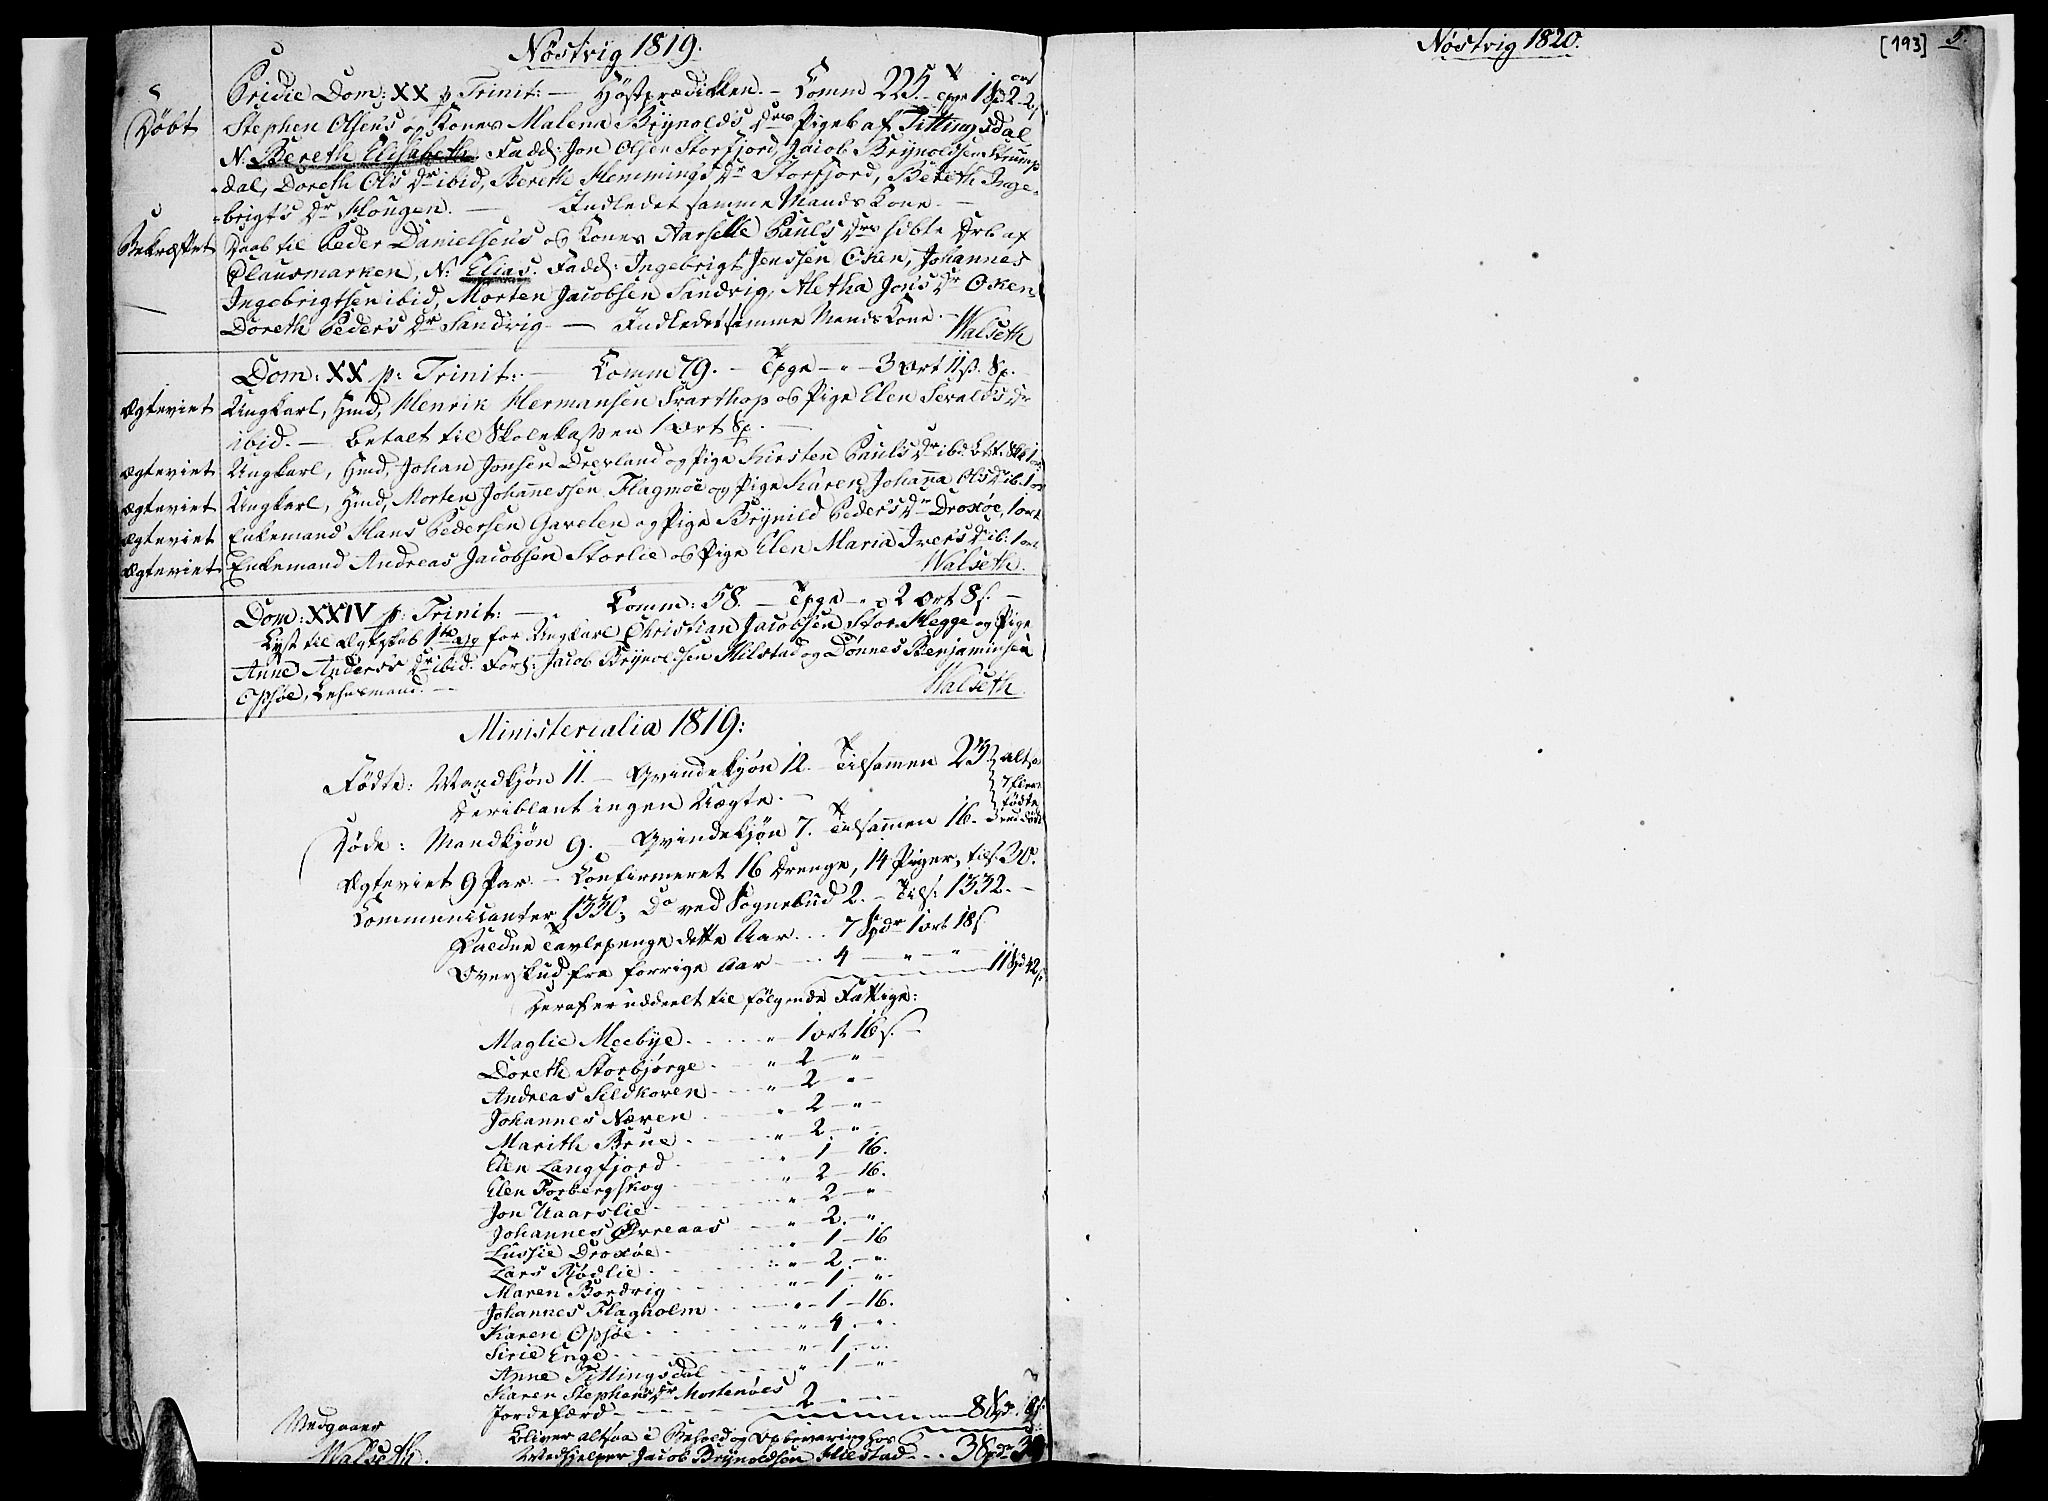 Nøstvig 1819.
Pridie Dom: XX p Trinit: — Høstprædikken. — Comm 225. — Tpge 1 Spd 2 ort 2 s
Døbt
Stephen Olsens og Kones Malena Brynolds Drs Pigeb af Tittingsdal,
N. Bereth Elisabeth. Fadd: Jon Olsen Storfjord, Jacob Brynoldsen Strump
dal, Doreth Ols Dr ibid, Bereth Hemmings Dr Storfjord, Bereth Inge-
brigts Dr Hougen. — Indledet samme Mands Kone. —
Bekræftet
Daab til Peder Danielsens og Kones Marselle Pauls Drs fødte Drb af
Clausmarken, N: Elias. Fadd: Ingebrigt Jenssen Osen, Johannes
Ingebrigtsen ibid, Morten Jacobsen Sandvig, Aletha Jons Dr Osen,
Doreth Peders Dr Sandvig. — Indledet samme Mands Kone. —
Walseth
Dom: XX p: Trinit: — Comm 79. — Tpge — „ — 3 ort 11 s. Sp. —
Ægteviet Ungkarl, Hmd, Henrik Hermansen Svarthop og Pige Elen Sevalds Dr
ibid. — betalt til Skolekassen 1 ort Sp. —
Ægteviet Ungkarl, Hmd, Johan Jonsen Drevland og Pige Kirsten Pauls Dr ibd.
Ægteviet Ungkarl, Hmd, Morten Johannessen Flagmøe og Pige Karen Johanna Ols Dr ib. 1 ort
Ægteviet Enkemand Hans Pedersen Gavelen og Pige Brynild Peders Dr Droxøe, 1 ort
Ægteviet Enkemand Andreas Jacobsen Storlie og Pige Elen Maria Ivers Dr ib: 1 ort
Walseth.
Dom: XXIV p: Trinit: — Comm: 58. — Tpge — „ 2 ort 8 s. —
Lyst til Ægteskab 1ste Gg for Ungkarl Christian Jacobsen Stor Hegge og Pige
Anne Anders Dr ibid. Forl: Jacob Brynoldsen Hilstad og Dønnes Benjaminsen
Opsøe, Lehnsmand. —
Walseth.
Ministerialia 1819:
Fødte: Mandkjøn 11. — Qvindekjøn 12. — Tilsammen 23. altsaa
Deriblant ingen Uægte. — 7 flere
fødte
Døde: Mandkjøn 9. — Qvindekjøn 7. Tilsammen 16. end døde
Ægteviet 9 Par. — Confirmeret 16 Drenge, 14 Piger, tils. 30.
Communicanter 1330; Do ved Sognebud 2. — Tils: 1332. —
Faldne Tavlepenge dette Aar . . . 7 Spdr 1 ort 18 s
Overskud fra forrige Aar — . . 4 — „ — „ — 11 Spd 42 s
Deraf er uddeelt til følgende Fattige:
Maglie Meebye . . . „ — 1 ort 16 s. —
Doreth Storbjørge . . . „ — 2 — „
Andreas Sildhoven . . . „ — 2 — „
Johannes Næven . . . „ — 2 — „
Marith Brue . . . „ — 2. — „
Elen Langfjord . . . „ — 1 — 16.
Elen Forbergskog . . . „ — 2 — 16.
Jon Uaarslie . . . „ — 2 — „
Johannes Ørreaas . . . „ — 2. — „
Lussie Droxøe . . . „ — 1 — 16
Lars Rødlie . . . „ — 2. — „
Maren Bordvig . . . „ — 1 — „
Johannes Flagholm . . . „ — 1 — 16.
Karen Opsøe . . . „ — 4. — „
Sirie Enge . . . „ — 1. — „
Anne Tittingsdal . . . „ — 1 — „
Karen Stephans Dr Mostenøes
Jordefærd . . . 2 . . . 8 Spd.
Bliver altsaa i Behold og Opbevaring hos
Medhjelper Jacob Brynoldsen Hilstad . . . 3 Spdr
Vedgaaer
Walseth.
Nøstvig 1820.
[193] 5.